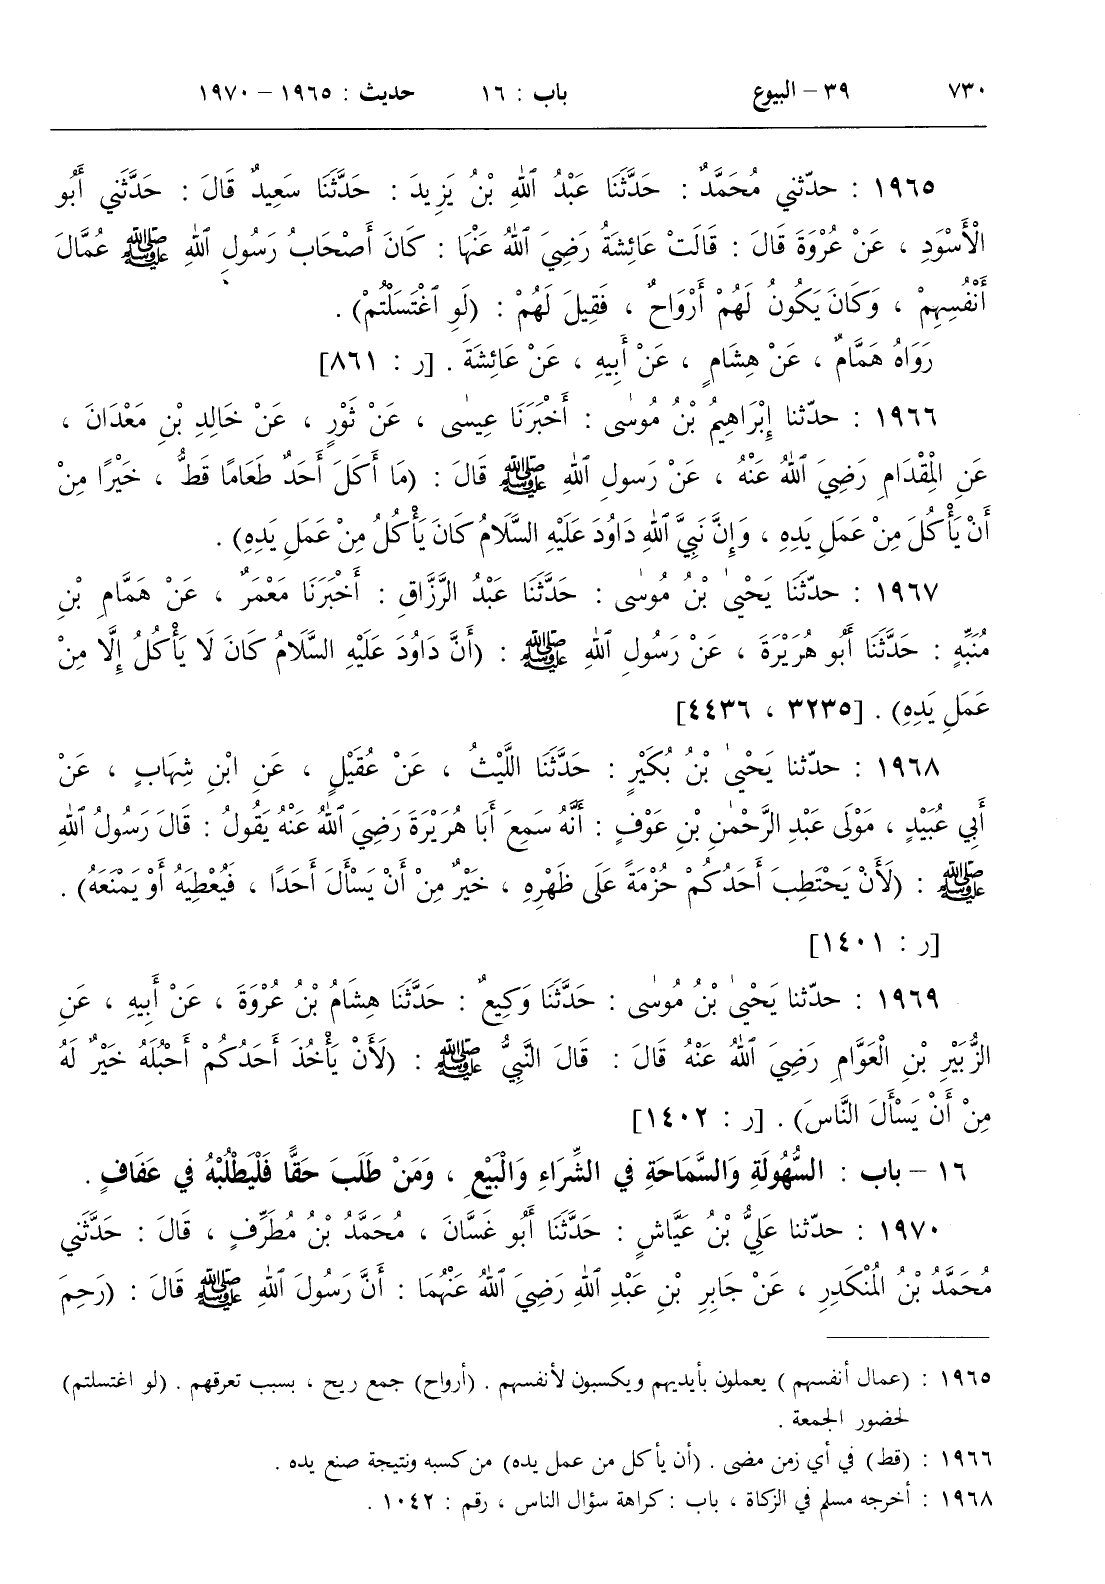 ٧٣٠ ٣٩ – البيوع باب : ١٦ حديث : ١٩٦٥ – ١٩٧٠
١٩٦٥ : حدّثني مُحَمَّدٌ : حَدَّثَنَا عَبْدُ ٱللهِ بْنُ يَزِيدَ : حَدَّثَنَا سَعِيدٌ قَالَ : حَدَّثَنِي أَبُو
الْأَسْوَدِ ، عَنْ عُرْوَةَ قَالَ : قَالَتْ عَائِشَةُ رَضِيَ ٱللهُ عَنْهَا : كَانَ أَصْحَابُ رَسُولِ ٱللهِ ﷺ عُمَّالَ
أَنْفُسِهِمْ ، وَكَانَ يَكُونُ لَهُمْ أَرْوَاحٌ ، فَقِيلَ لَهُمْ : (لَوِ ٱغْتَسَلْتُمْ) .
رَوَاهُ هَمَّامٌ ، عَنْ هِشَامٍ ، عَنْ أَبِيهِ ، عَنْ عَائِشَةَ . [ر : ٨٦١]
١٩٦٦ : حدّثنا إِبْرَاهِيمُ بْنُ مُوسٰى : أَخْبَرَنَا عِيسٰى ، عَنْ ثَوْرٍ ، عَنْ خَالِدِ بْنِ مَعْدَانَ ،
عَنِ الْمِقْدَامِ رَضِيَ ٱللهُ عَنْهُ ، عَنْ رَسولِ ٱللهِ ﷺ قَالَ : (مَا أَكَلَ أَحَدٌ طَعَامًا قَطُّ ، خَيْرًا مِنْ
أَنْ يَأْكُلَ مِنْ عَمَلِ يَدِهِ ، وَإِنَّ نَبِيَّ ٱللهِ دَاوُدَ عَلَيْهِ السَّلَامُ كَانَ يَأْكُلُ مِنْ عَمَلِ يَدِهِ) .
١٩٦٧ : حدّثَنَا يَحْيىٰ بْنُ مُوسٰى : حَدَّثَنَا عَبْدُ الرَّزَّاقِ : أَخْبَرَنَا مَعْمَرٌ ، عَنْ هَمَّامِ بْنِ
مُنَبِّهٍ : حَدَّثَنَا أَبُو هُرَيْرَةَ ، عَنْ رَسُولِ ٱللهِ ﷺ : (أَنَّ دَاوُدَ عَلَيْهِ السَّلَامُ كَانَ لَا يَأْكُلُ إِلَّا مِنْ
عَمَلِ يَدِهِ) . [٣٢٣٥ ، ٤٤٣٦]
١٩٦٨ : حدّثنا يَحْيىٰ بْنُ بُكَيْرٍ : حَدَّثَنَا اللَّيْثُ ، عَنْ عُقَيْلٍ ، عَنِ ابْنِ شِهَابٍ ، عَنْ
أَبِي عُبَيْدٍ ، مَوْلَى عَبْدِ الرَّحْمٰنِ بْنِ عَوْفٍ : أَنَّهُ سَمِعَ أَبَا هُرَيْرَةَ رَضِيَ ٱللهُ عَنْهُ يَقُولُ : قَالَ رَسُولُ ٱللهِ
ﷺ : (لَأَنْ يَحْتَطِبَ أَحَدُكُمْ حُزْمَةً عَلَى ظَهْرِهِ ، خَيْرٌ مِنْ أَنْ يَسْأَلَ أَحَدًا ، فَيُعْطِيَهُ أَوْ يَمْنَعَهُ) .
[ر : ١٤٠١]
١٩٦٩ : حدّثنا يَحْيىٰ بْنُ مُوسٰى : حَدَّثَنَا وَكِيعٌ : حَدَّثَنَا هِشَامُ بْنُ عُرْوَةَ ، عَنْ أَبِيهِ ، عَنِ
الزُّبَيْرِ بْنِ الْعَوَّامِ رَضِيَ ٱللهُ عَنْهُ قَالَ : قَالَ النَّبِيُّ ﷺ : (لَأَنْ يَأْخُذَ أَحَدُكُمْ أَحْبُلَهُ خَيْرٌ لَهُ
مِنْ أَنْ يَسْأَلَ النَّاسَ) . [ر : ١٤٠٢]
١٦ – باب : السُّهُولَةِ وَالسَّمَاحَةِ فِي الشِّرَاءِ وَالْبَيْعِ ، وَمَنْ طَلَبَ حَقًّا فَلْيَطْلُبْهُ فِي عَفَافٍ .
١٩٧٠ : حدّثنا عَلِيُّ بْنُ عَيَّاشٍ : حَدَّثَنَا أَبُو غَسَّانَ ، مُحَمَّدُ بْنُ مُطَرِّفٍ ، قَالَ : حَدَّثَنِي
مُحَمَّدُ بْنُ الْمُنْكَدِرِ ، عَنْ جَابِرِ بْنِ عَبْدِ ٱللهِ رَضِيَ ٱللهُ عَنْهُمَا : أَنَّ رَسُولَ ٱللهِ ﷺ قَالَ : (رَحِمَ
١٩٦٥ : (عمال أنفسهم ) يعملون بأيديهم ويكسبون لأنفسهم . (أرواح) جمع ريح ، بسبب تعرقهم . (لو اغتسلتم)
لحضور الجمعة .
١٩٦٦ : (قط) في أي زمن مضى . (أن يأكل من عمل يده) من كسبه ونتيجة صنع يده .
١٩٦٨ : أخرجه مسلم في الزكاة ، باب : كراهة سؤال الناس ، رقم : ١٠٤٢ .